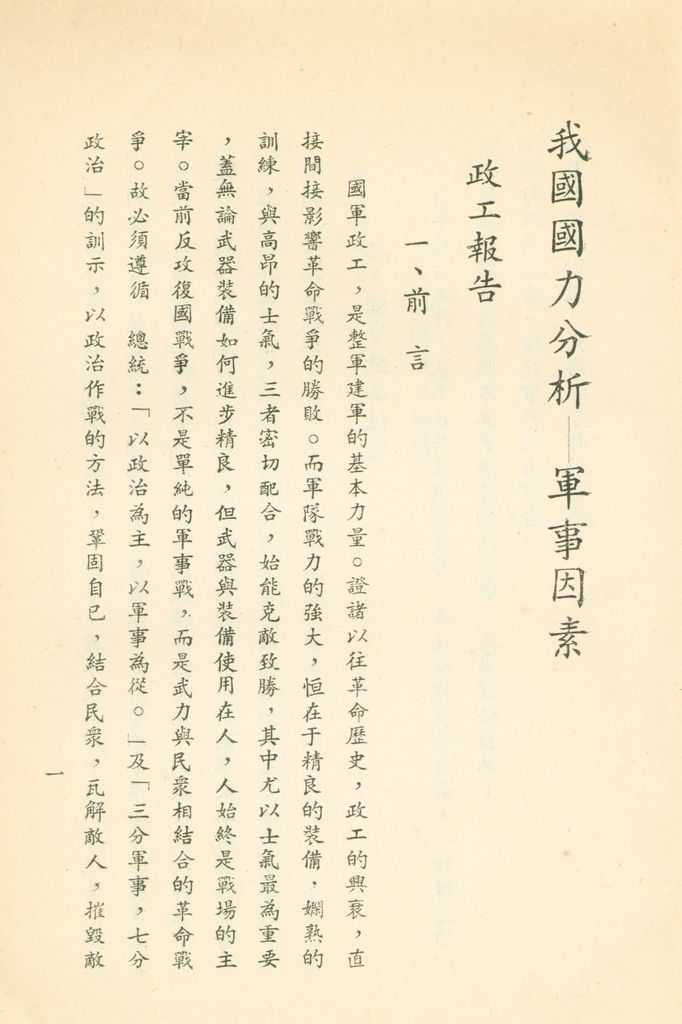 我國國力分析—軍事因素
政工報告
一、前言
國軍政工，是整軍建軍的基本力量。證諸以往革命歷史，政工的興衰，直
接間接影響革命戰爭的勝敗。而軍隊戰力的強大，恒在于精良的裝備，嫻熟的
訓練，與高昂的士氣，三者密切配合，始能克敵致勝，其中尤以士氣最為重要
，蓋無論武器裝備如何進步精良，但武器與裝備使用在人，人始終是戰場的主
宰。當前反攻復國戰爭，不是單純的軍事戰，而是武力與民衆相結合的革命戰
爭。故必須遵循　總統：「以政治為主，以軍事為從。」及「三分軍事，七分
政治」的訓示，以政治作戰的方法，鞏固自己，結合民衆，瓦解敵人，摧毀敵
一